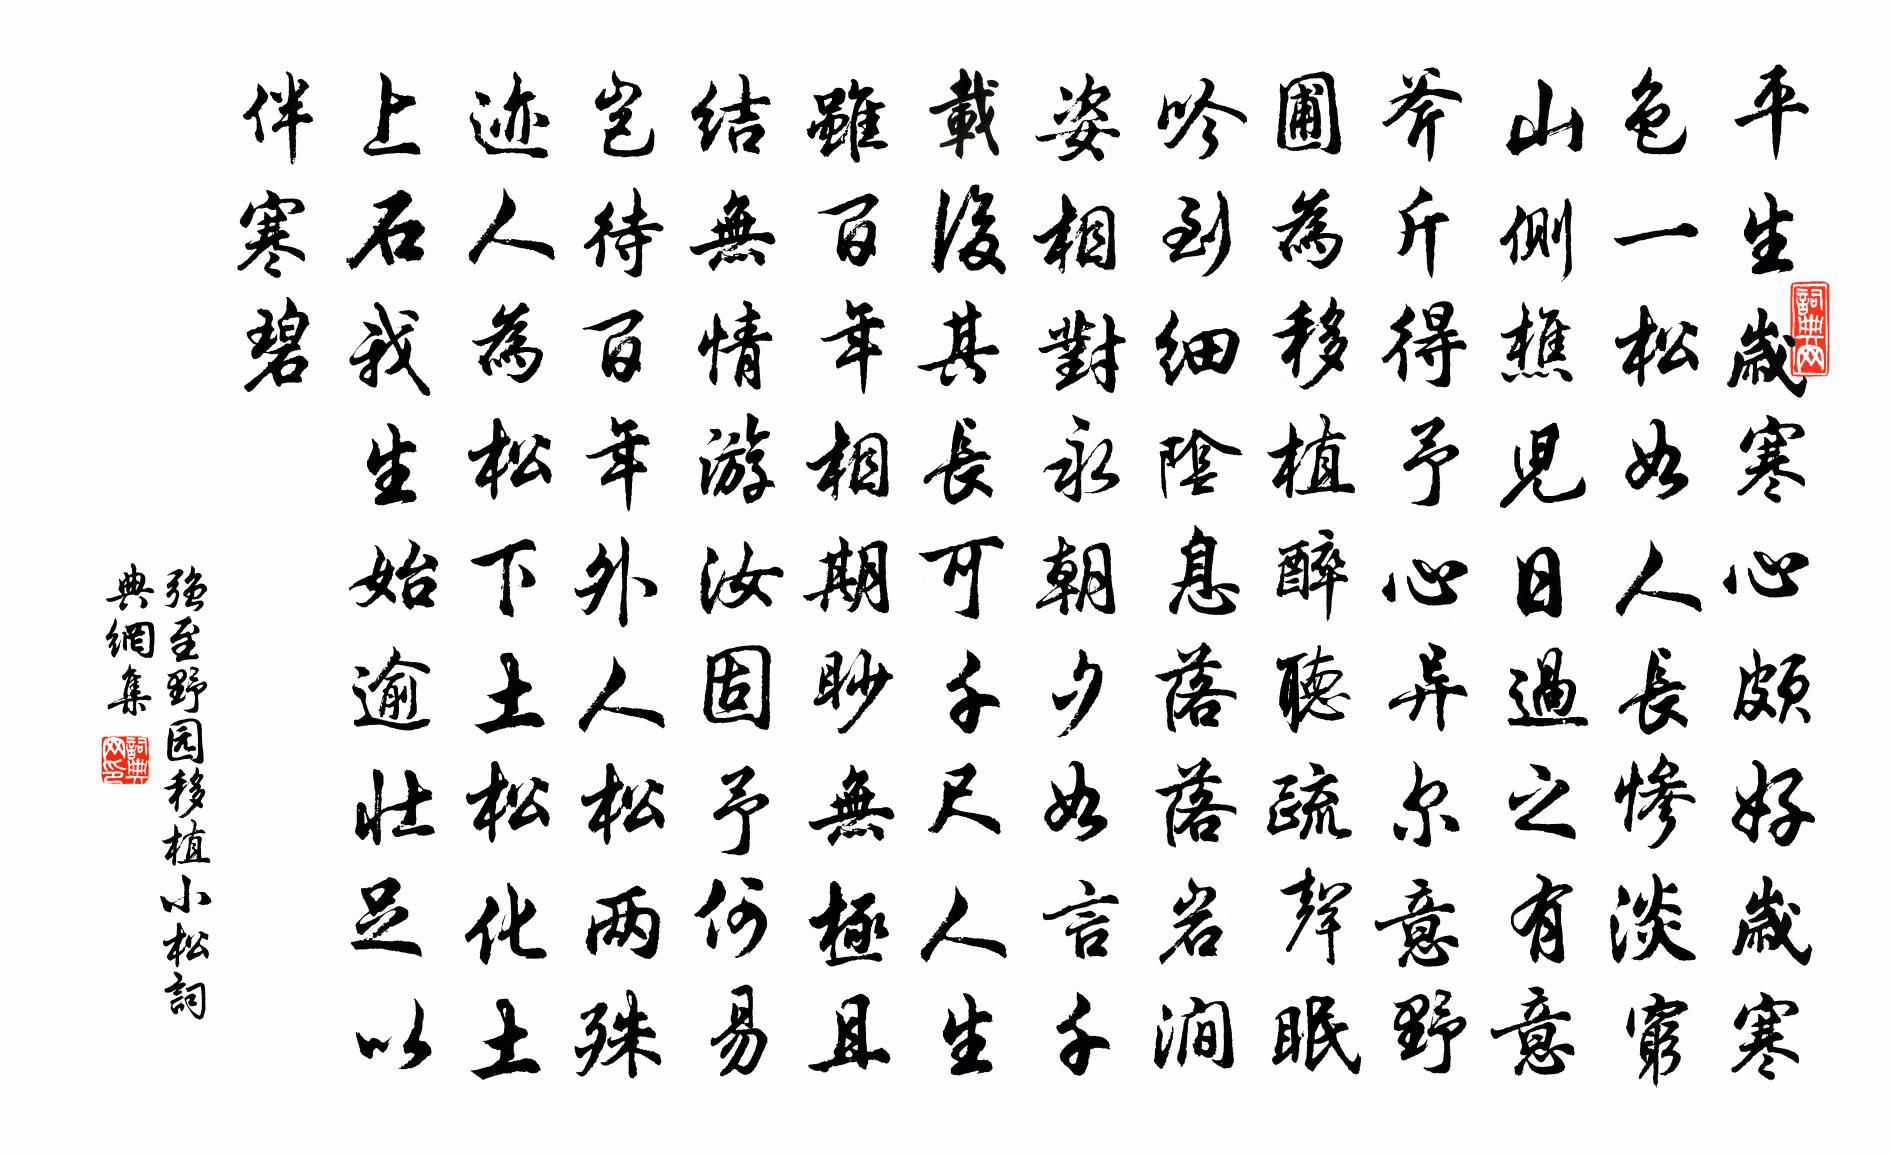 平生歲寒心頗好歲寒
色一松如人長慘淡窮
山側樵児日過之有意
斧斤得予心异尔意野
圃為移植醉聽疏聲眠
吟到細陰息落落岩澗
姿相對永朝夕如言千
載後其長可千尺人生
雖百年相期眇無極且
结無情游汝固予何易
豈待百年外人松两殊
迹人為松下土松化土
上石我生始逾壯足以
伴寒碧
强至野园移植小松詞
典網集
詞典网
詞典网印